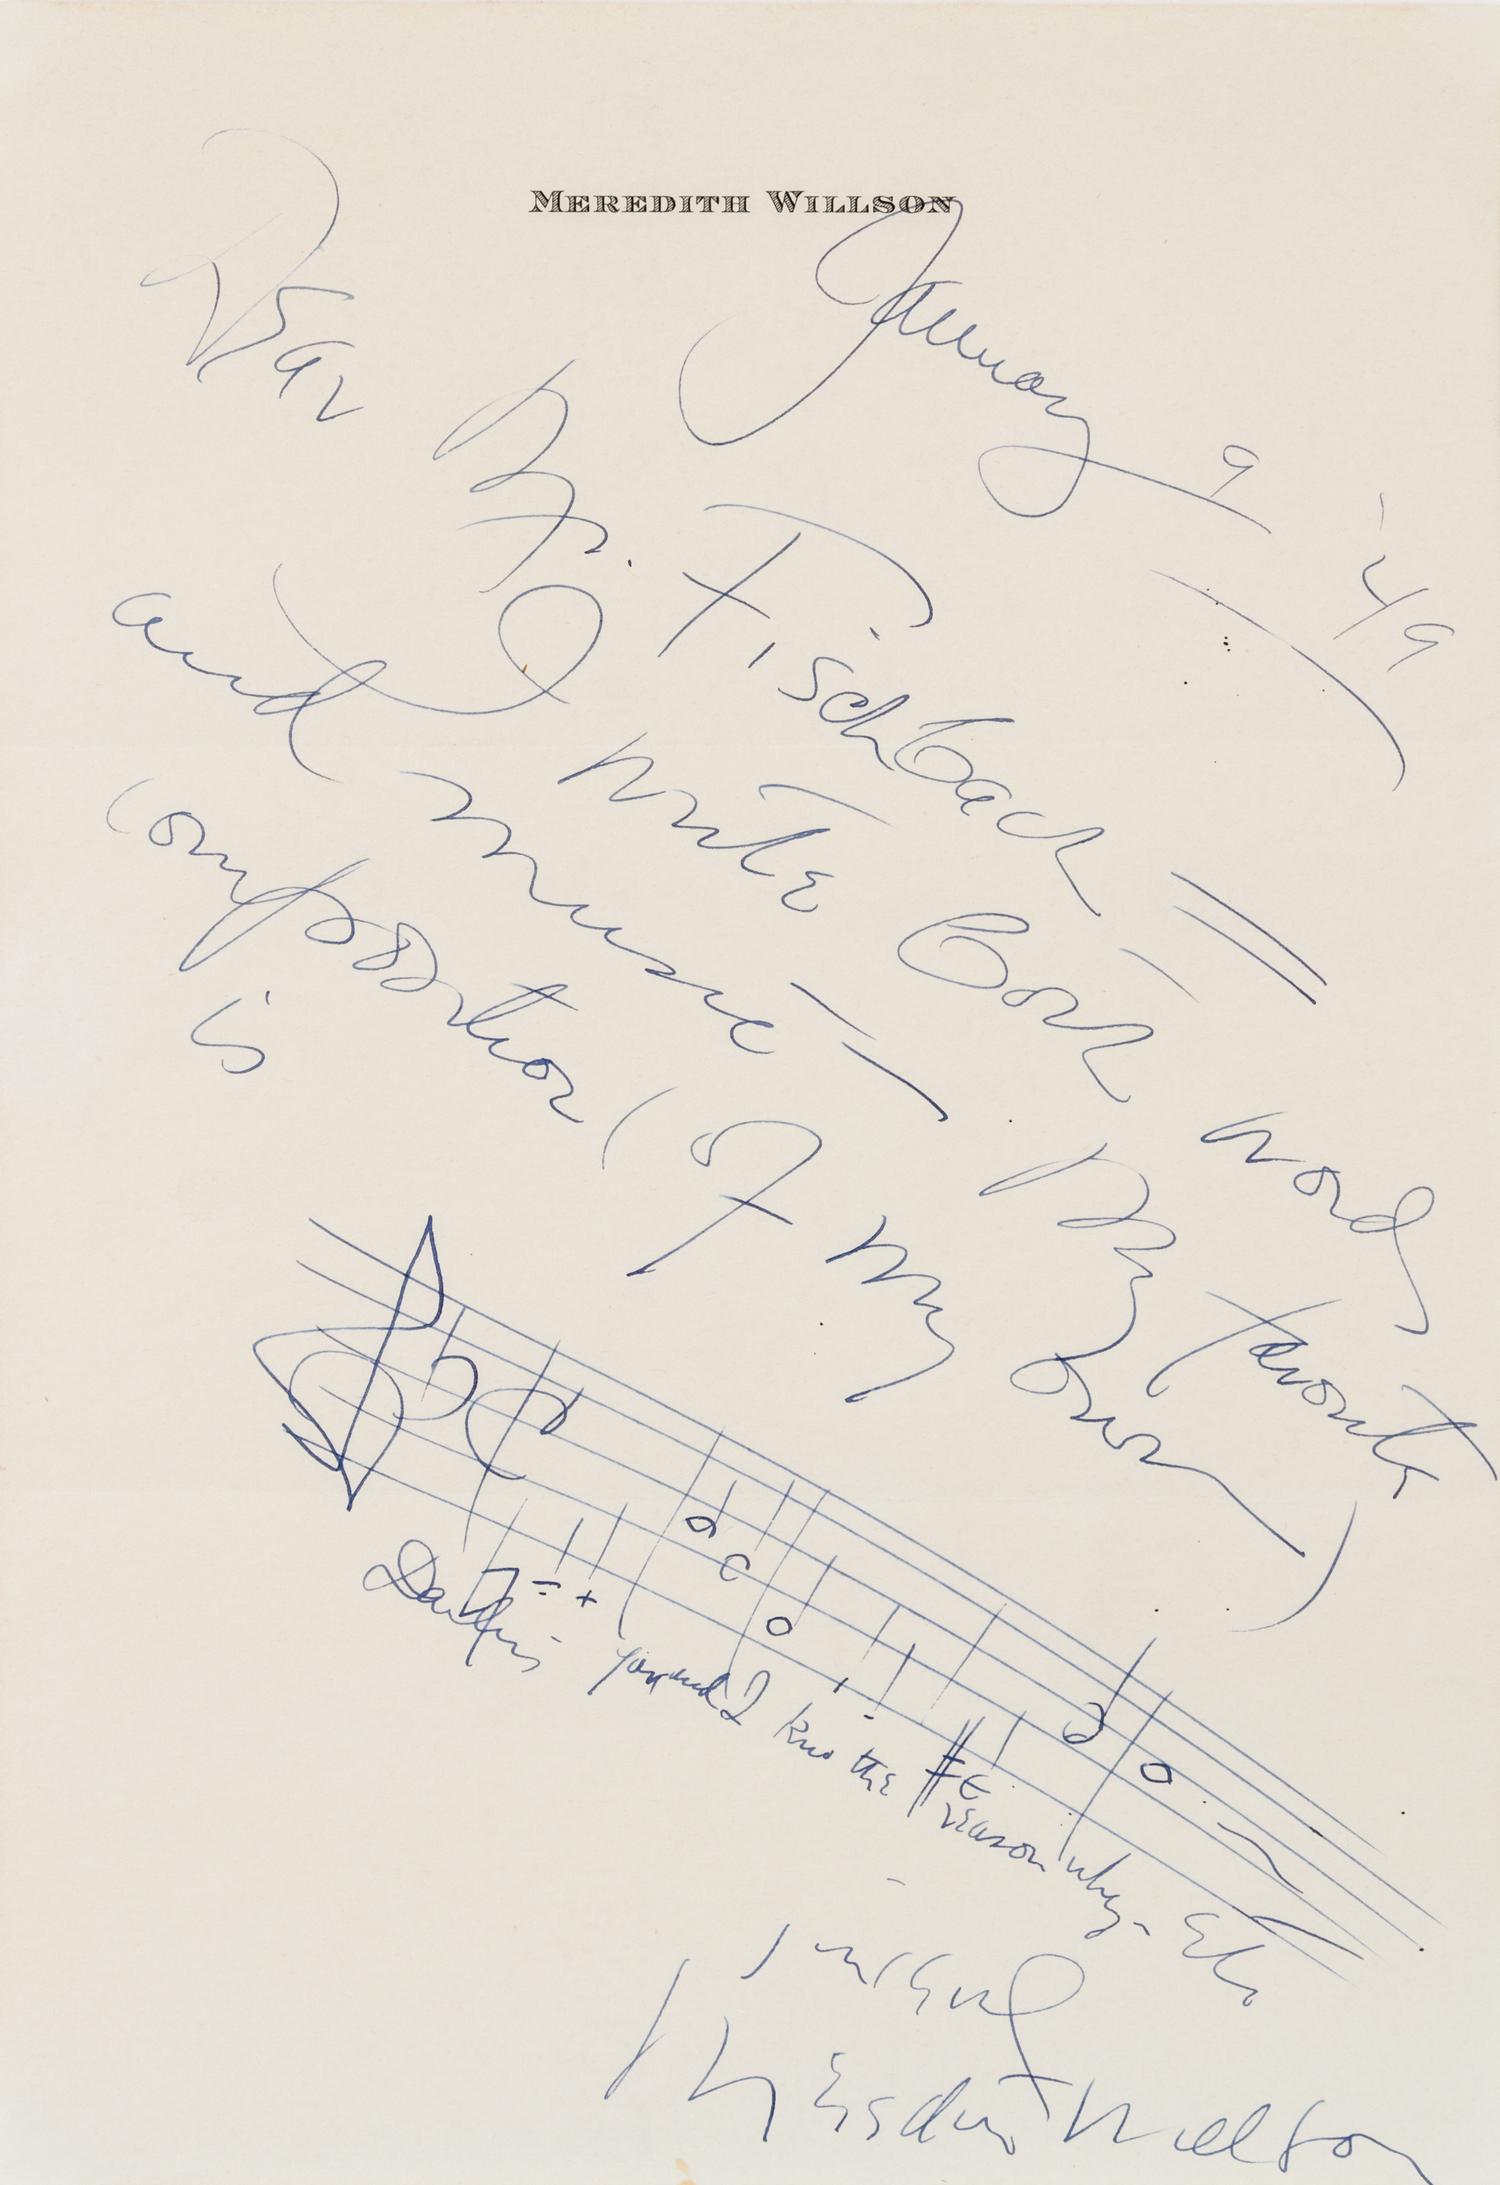 MEREDITH WILLSON
January 9 '49
Dear Mr. Fischbach =
I write both words
and music — My favorite
composition (of my own)
is
Darling you and I know the reason why - etc
Sincerely
Meredith Willson